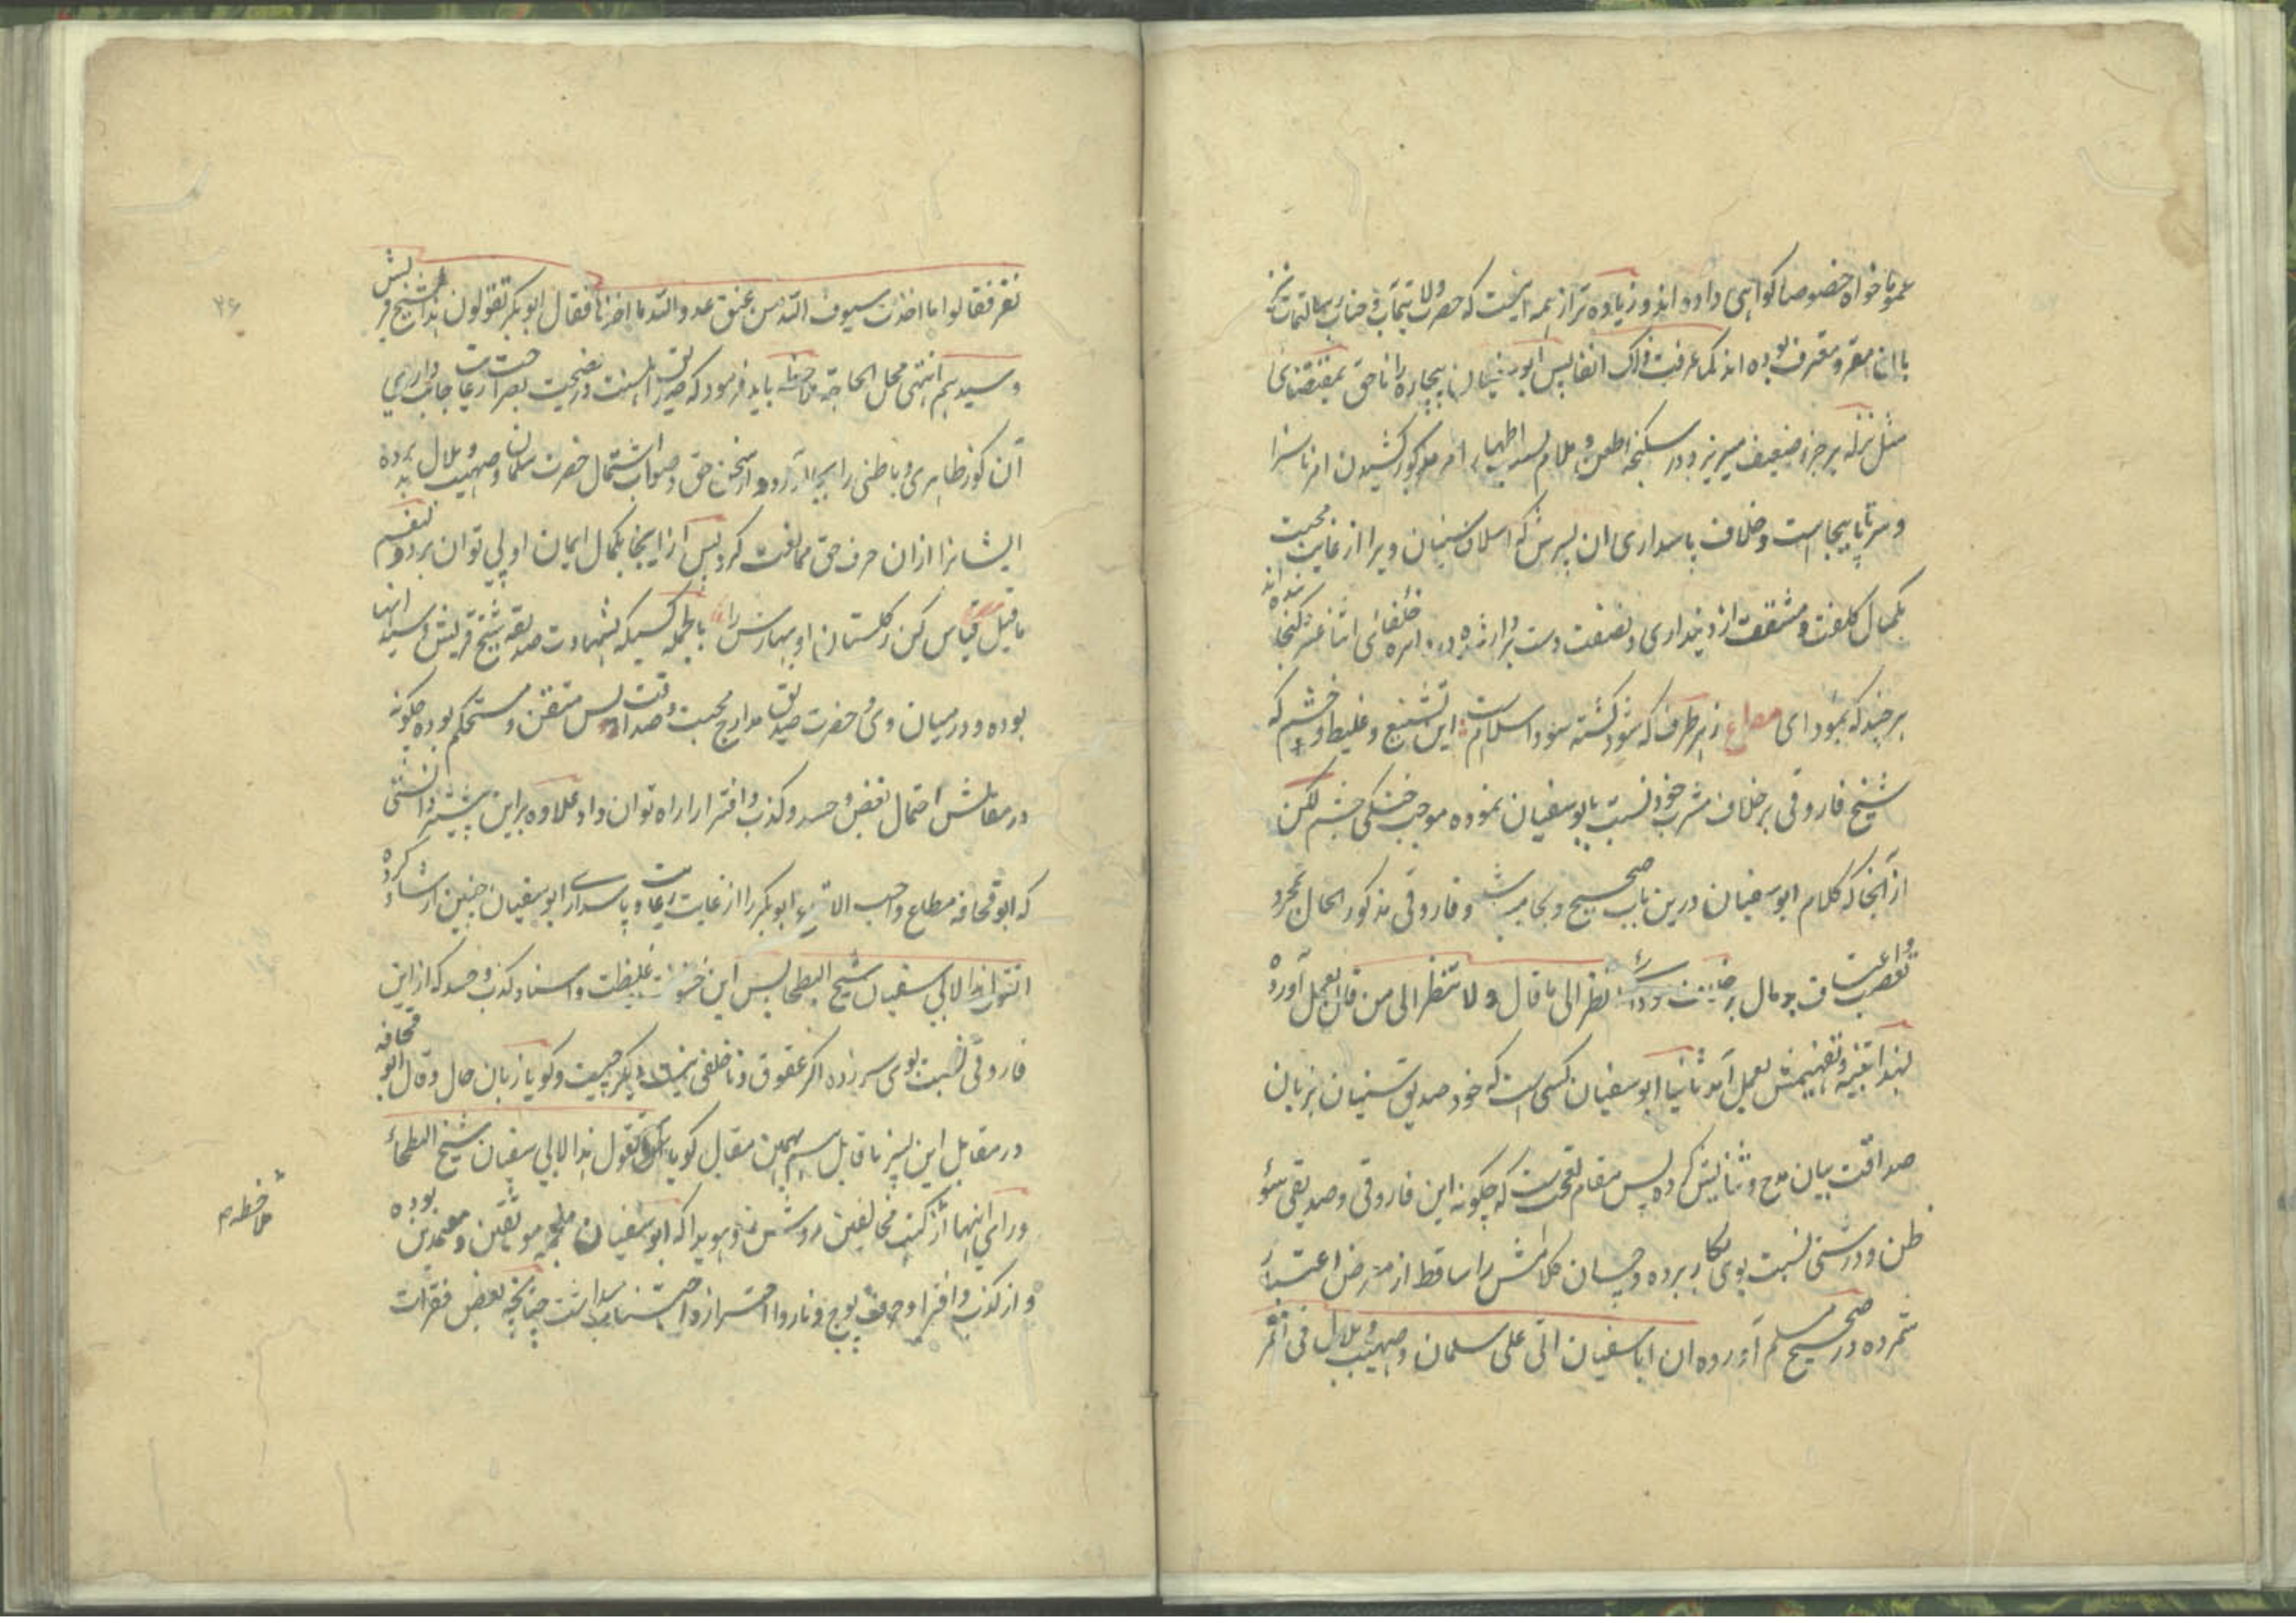 عموما خواه خصوصا کواهی داده اند و زیاده تر از همه اینست که حضرت ولایتمآب و جناب رسالتمآب نیز
باان مقر و معترف بوده اند کما عرفت ذلک انفا پس ابو سفیان بیچاره را ناحق بمقتضای
مثل نزله بر جزء ضعیف میریزد در شکنجه طعن و ملام بسبب اظهار امر مذکور کشیدن امر ناسزا
و سر تا پا بیجا است و خلاف پاسداری ان پسرش که اسلاف سنیان ویرا از غایت محبت
بکمال کلفت و مشقت از دینداری و نصفت دست برداشته در زمره خلفای اثنا عشر کنجانیده اند
هر چند که نبود ای مصراع ز هر طرف که شود کشته سود اسلام است این تشنیع و غلیظ و خشم که
شیخ فاروقی بر خلاف مشرب خود نسبت بابو سفیان نموده موجب خنکی چشم لکن
از آنجا که کلام ابو سفیان درین باب صحیح و بجا میباشد و فاروقی مذکور الحال بمجرد
تعصب و اعتساف پر مال انظر الی ما قال و لا تنظر الی من قال بعمل آورده
لهذا تنبیه و تفهیمش بعمل آمد ثانیا ابو سفیان کسی است که خود صدیق سنیان بزبان
صداقت بیان مدح و ثنایش کرده پس مقام تعجب است که چکونه این فاروقی و صدیقی سوء
ظن و درشتی نسبت بوی بکار برده و چسان کلامش را ساقط از معرض اعتبار
شمرده در صحیح مسلم آورده ان ابا سفیان اتی علی سلمان و صهیب و بلال فی نفر
۲۶
نفر فقالوا ما اخذت سیوف الله من عنق عدو الله ما اخذها فقال ابو بکر تقولون هذا لشیخ قریش
و سیدهم انتهی محل الحاجة ملاحظه باید فرمود که صدیق اهلسنت در نصیحت بصراحت رعایت جانب داری
آن کور ظاهری و باطنی را بجا آورده از سخن حق و صواب اشتمال حضرت سلمان و صهیب و بلال بد برده
ایشانرا ازان حرف حق ممانعت کرد پس از اینجا بکمال ایمان او پی توان برد و لنعم
ما قیل قیاس کن ز کلستان او بهارش را بالجمله کسیکه بشهادت صدیقه شیخ قریش و سید انها
بوده و درمیان وی و حضرت صدیق مدارج محبت و صداقت بس متقن و مستحکم بوده چکونه
در مقالش احتمال بغض و حسد و کذب و افترا را راه توان داد علاوه براین پیشتر دانستی
که ابو قحافه مطاع واجب الاتباع ابو بکر را از غایت رعایت و پاسداری ابو سفیان چنین ارشاد کرده
اتقول هذا لابی سفیان شیخ البطحا پس این خشونت غلیظت و اسناد کذب و حسد که از این
فاروقی نسبت بوی سر زده اکر عقوق و ناخلفی نیست دیکر چیست و کویا زبان حال و قال ابو قحافه
در مقابل این پسر ناقابل بهمین مقال کویاست اتقول هذا لابی سفیان شیخ البطحاء
ورای اینها از کتب مخالفین روشن و هویدا که ابو سفیان از جمله موثقین و معتمدین بوده
و از کذب و افترا و حرف پوچ و ناروا احتراز و اجتناب میداشت چنانچه بعض فقرات
ملاحظه